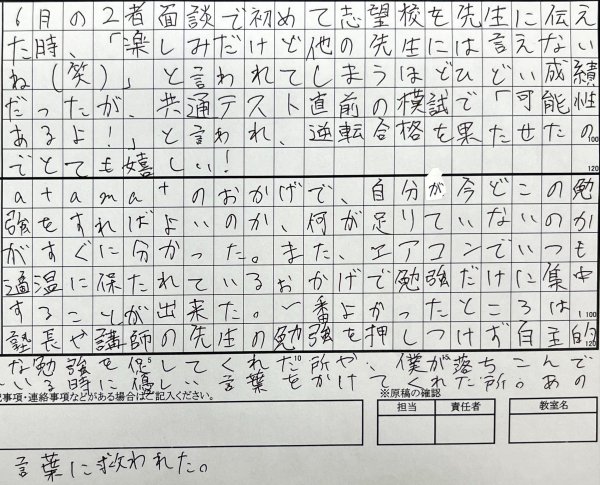 6月の2者面談で初めて志望校を先生に伝え
た時、「楽しみだけど他の先生には言えない
ね(笑)」と言われてしまうほどひどい成績
だったが、共通テスト直前の模試で「可能性
あるよ!」と言われ、逆転合格を果たせたの
100
でとても嬉しい!
120
atama+のおかげで、自分が今どこの勉
強をすればよいのか、何が足りていないのか
がすぐに分かった。また、エアコンでいつも
適温に保たれているおかげで勉強だけに集中
することが出来た。一番よかったところは
100
塾長や講師の先生の勉強を押しつけず自主的
120
な勉強を促してくれた所や、僕が落ちこんで
いる時に優しい言葉をかけてくれた所。あの
記事項・連絡事項などがある場合はご記入ください。
※原稿の確認
担当 責任者 教室名
言葉に救われた。